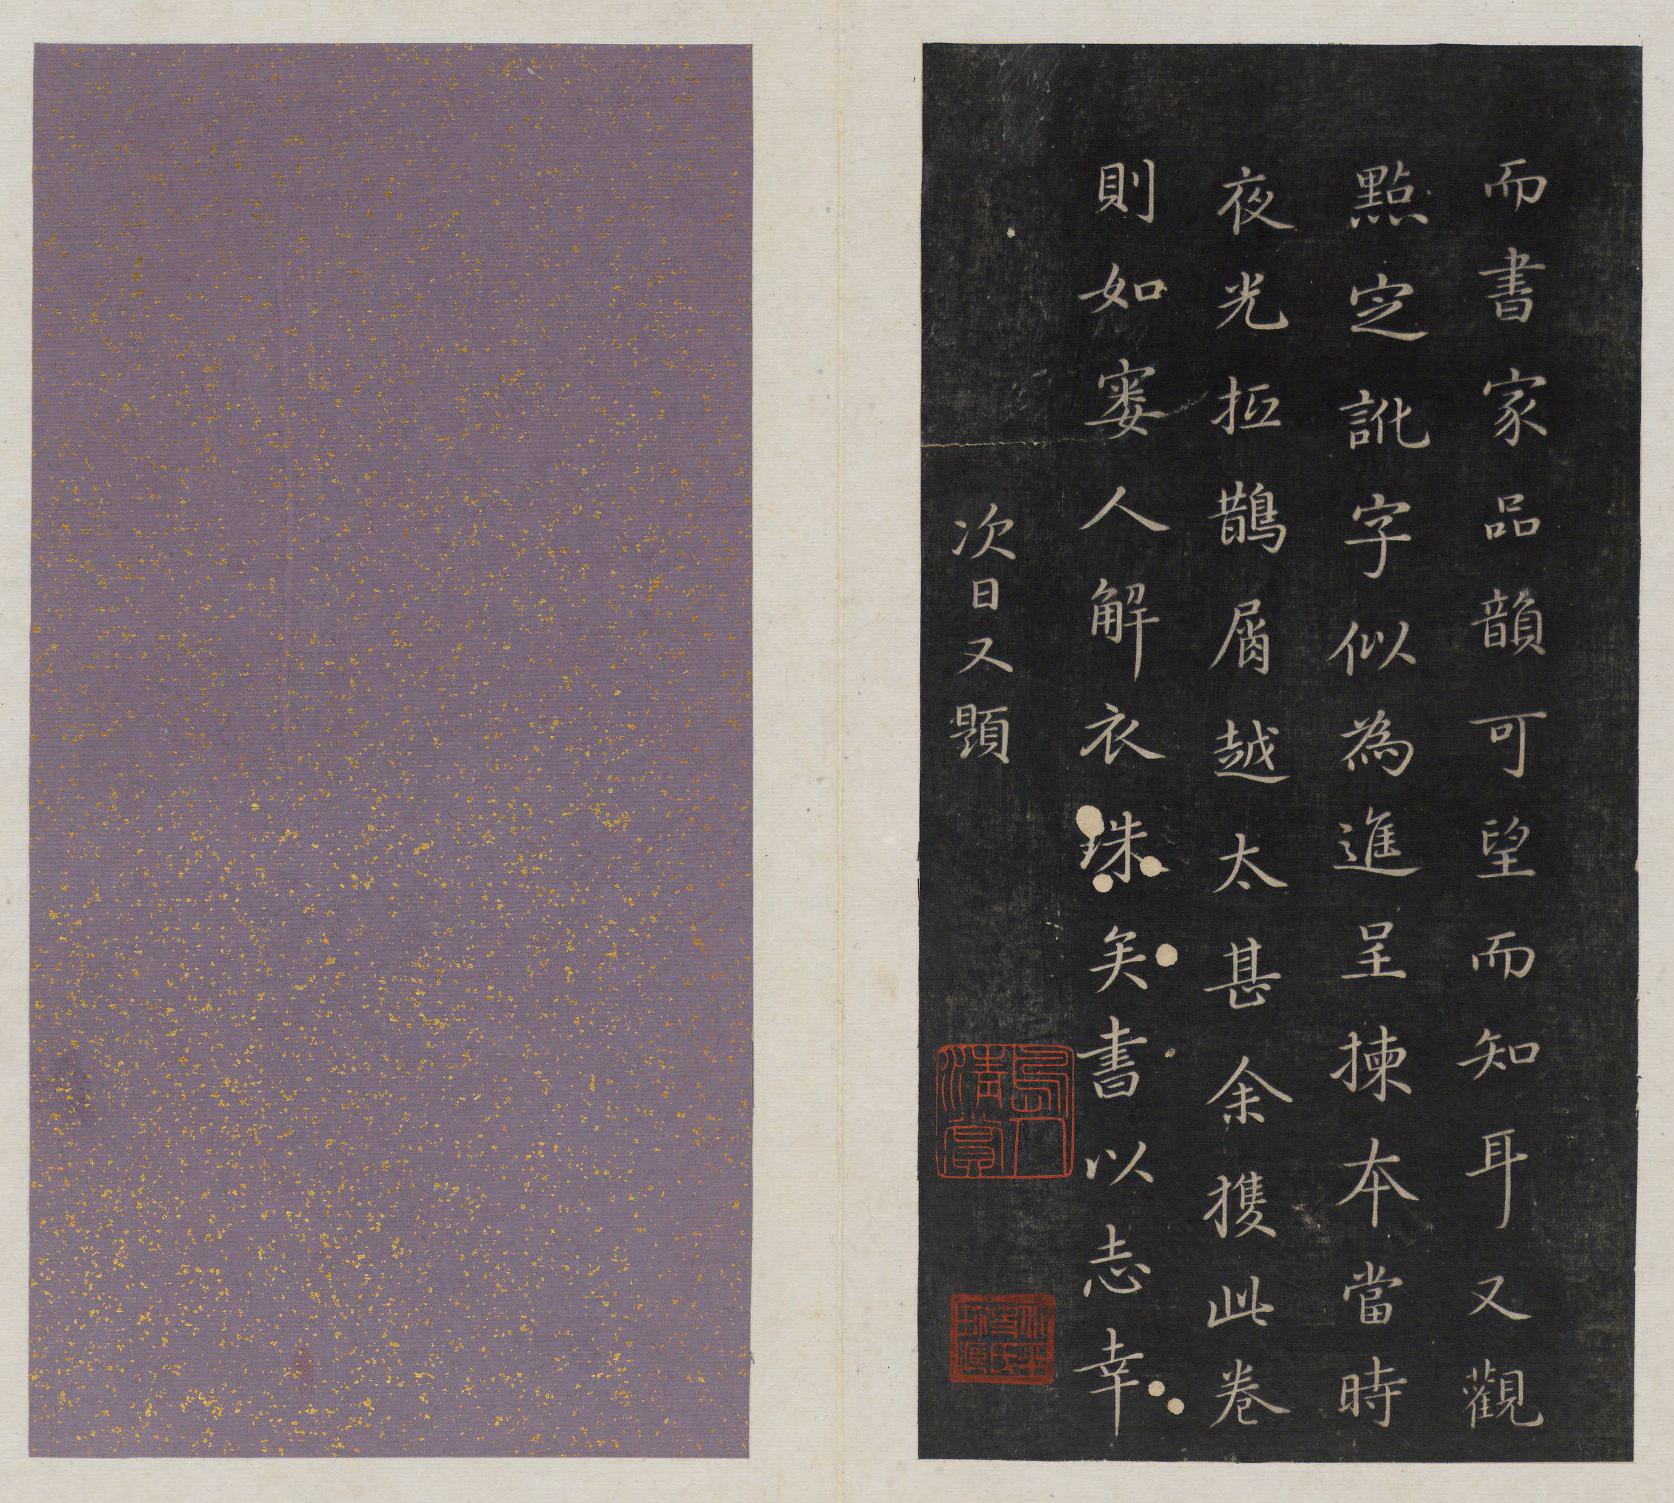 而書家品韻可望而知耳又觀
點定訛字似為進呈揀本當時
夜光抵鵲屑越太甚余攫此卷
則如窶人解衣珠矣書以志幸
次日又題
清賞